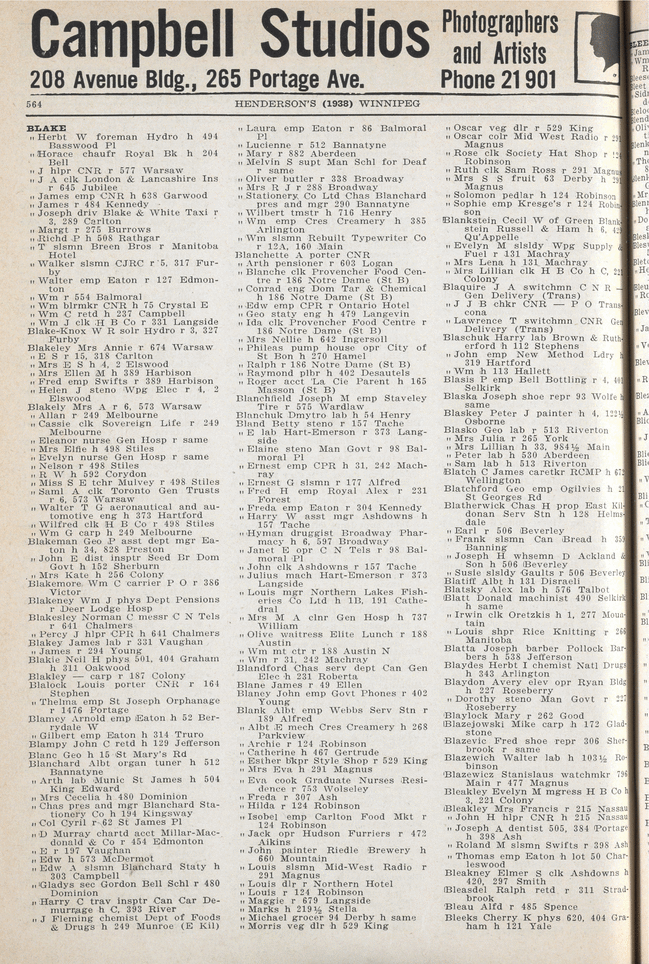 Campbell Studios
Photographers
and Artists
208 Avenue Bldg., 265 Portage Ave.
Phone 21 901
564
HENDERSON'S (1938) WINNIPEG
BLAKE
„ Herbt W foreman Hydro h 494
Basswood Pl
„ Horace chaufr Royal Bk h 204
Bell
„ J hlpr CNR r 577 Warsaw
„ J A clk London & Lancashire Ins
r 645 Jubilee
„ James emp CNR h 638 Garwood
„ James r 484 Kennedy
„ Joseph driv Blake & White Taxi r
3, 289 Carlton
„ Margt r 275 Burrows
„ Richd P h 508 Rathgar
„ T slsmn Breen Bros r Manitoba
Hotel
„ Walker slsmn CJRC r 5, 317 Fur-
by
„ Walter emp Eaton r 127 Edmon-
ton
„ Wm r 554 Balmoral
„ Wm blrmkr CNR h 75 Crystal E
„ Wm C retd h 237 Campbell
„ Wm J clk H B Co r 331 Langside
Blake-Knox W R solr Hydro r 3, 327
Furby
Blakeley Mrs Annie r 674 Warsaw
„ E S r 15, 318 Carlton
„ Mrs E S h 4, 2 Elswood
„ Mrs Ellen M h 389 Harbison
„ Fred emp Swifts r 389 Harbison
„ Helen J steno Wpg Elec r 4, 2
Elswood
Blakely Mrs A r 6, 573 Warsaw
„ Allan r 249 Melbourne
„ Cassie clk Sovereign Life r 249
Melbourne
„ Eleanor nurse Gen Hosp r same
„ Mrs Elfie h 498 Stiles
„ Evelyn nurse Gen Hosp r same
„ Nelson r 498 Stiles
„ R W h 592 Corydon
„ Miss S E tchr Mulvey r 498 Stiles
„ Saml A clk Toronto Gen Trusts
r 6, 573 Warsaw
„ Walter T G aeronautical and au-
tomotive eng h 373 Hartford
„ Wilfred clk H B Co r 498 Stiles
„ Wm G carp h 249 Melbourne
Blakeman Geo P asst dept mgr Ea-
ton h 34, 828 Preston
„ John E dist insptr Seed Br Dom
Govt h 152 Sherburn
„ Mrs Kate h 256 Colony
Blakemore Wm C carrier P O r 386
Victor
Blakeney Wm J phys Dept Pensions
r Deer Lodge Hosp
Blakesley Norman C messr C N Tels
r 641 Chalmers
„ Percy J hlpr CPR h 641 Chalmers
Blakey James lab r 331 Vaughan
„ James r 294 Young
Blakie Neil H phys 501, 404 Graham
h 311 Oakwood
Blakley — carp r 187 Colony
Blalock Louis porter CNR r 164
Stephen
„ Thelma emp St Joseph Orphanage
r 1476 Portage
Blamey Arnold emp Eaton h 52 Ber-
rydale W
„ Gilbert emp Eaton h 314 Truro
Blampy John C retd h 129 Jefferson
Blanc Geo h 15 St Mary's Rd
Blanchard Albt organ tuner h 512
Bannatyne
„ Arth lab Munic St James h 504
King Edward
„ Mrs Cecelia h 480 Dominion
„ Chas pres and mgr Blanchard Sta-
tionery Co h 194 Kingsway
„ Col Cyril r 62 St James Pl
„ D Murray chartd acct Millar-Mac-
donald & Co r 454 Edmonton
„ E r 197 Vaughan
„ Edw h 573 McDermot
„ Edw A slsmn Blanchard Staty h
303 Campbell
„ Gladys sec Gordon Bell Schl r 480
Dominion
„ Harry C trav insptr Can Car De-
murrage h C, 393 River
„ J Fleming chemist Dept of Foods
& Drugs h 249 Munroe (E Kil)
„ Laura emp Eaton r 86 Balmoral
Pl
„ Lucienne r 512 Bannatyne
„ Mary r 882 Aberdeen
„ Melvin S supt Man Schl for Deaf
r same
„ Oliver butler r 338 Broadway
„ Mrs R J r 288 Broadway
„ Stationery Co Ltd Chas Blanchard
pres and mgr 290 Bannatyne
„ Wilbert tmstr h 716 Henry
„ Wm emp Cres Creamery h 385
Arlington
„ Wm slsmn Rebuilt Typewriter Co
r 12A, 160 Main
Blanchette A porter CNR
„ Arth pensioner r 603 Logan
„ Blanche clk Provencher Food Cen-
tre r 186 Notre Dame (St B)
„ Conrad eng Dom Tar & Chemical
h 186 Notre Dame (St B)
„ Edw emp CPR r Ontario Hotel
„ Geo staty eng h 479 Langevin
„ Ida clk Provencher Food Centre r
186 Notre Dame (St B)
„ Mrs Nellie h 642 Ingersoll
„ Phileas pump house opr City of
St Bon h 270 Hamel
„ Ralph r 186 Notre Dame (St B)
„ Raymond plbr h 402 Desautels
„ Roger acct La Cie Parent h 165
Masson (St B)
Blanchfield Joseph M emp Staveley
Tire r 575 Wardlaw
Blanchuk Dmytro lab h 54 Henry
Bland Betty steno r 157 Tache
„ E lab Hart-Emerson r 373 Lang-
side
„ Elaine steno Man Govt r 98 Bal-
moral Pl
„ Ernest emp CPR h 31, 242 Mach-
ray
„ Ernest G slsmn r 177 Alfred
„ Fred H emp Royal Alex r 231
Forest
„ Freda emp Eaton r 304 Kennedy
„ Harry W asst mgr Ashdowns h
157 Tache
„ Hyman druggist Broadway Phar-
macy h 6, 597 Broadway
„ Janet E opr C N Tels r 98 Bal-
moral Pl
„ John clk Ashdowns r 157 Tache
„ Julius mach Hart-Emerson r 373
Langside
„ Louis mgr Northern Lakes Fish-
eries Co Ltd h 1B, 191 Cathe-
dral
„ Mrs M A clnr Gen Hosp h 737
William
„ Olive waitress Elite Lunch r 188
Austin
„ Wm mt ctr r 188 Austin N
„ Wm r 31, 242 Machray
Blandford Chas serv dept Can Gen
Elec h 231 Roberta
Blane James r 49 Ellen
Blaney John emp Govt Phones r 402
Young
Blank Albt emp Webbs Serv Stn r
189 Alfred
„ Albt E mech Cres Creamery h 268
Parkview
„ Archie r 124 Robinson
„ Catherine h 467 Gertrude
„ Esther bkpr Style Shop r 529 King
„ Mrs Eva h 291 Magnus
„ Eva cook Graduate Nurses Resi-
dence r 753 Wolseley
„ Freda r 307 Ash
„ Hilda r 124 Robinson
„ Isobel emp Carlton Food Mkt r
124 Robinson
„ Jack opr Hudson Furriers r 472
Aikins
„ John painter Riedle Brewery h
660 Mountain
„ Louis slsmn Mid-West Radio r
291 Magnus
„ Louis dlr r Northern Hotel
„ Louis r 124 Robinson
„ Maggie r 679 Langside
„ Marks h 219½ Stella
„ Michael grocer 94 Derby h same
„ Morris veg dlr h 529 King
„ Oscar veg dlr r 529 King
„ Oscar colr Mid West Radio r 291
Magnus
„ Rose clk Society Hat Shop r 124
Robinson
„ Ruth clk Sam Ross r 291 Magnus
„ Mrs S S fruit 63 Derby h 291
Magnus
„ Solomon pedlar h 124 Robinson
„ Sophie emp Kresge's r 124 Robin-
son
Blankstein Cecil W of Green Blank-
stein Russell & Ham h 6,
Qu'Appelle
„ Evelyn M slsldy Wpg Supply &
Fuel r 131 Machray
„ Mrs Lena h 131 Machray
„ Mrs Lillian clk H B Co h C,
Colony
Blaquire J A switchmn C N R —
Gen Delivery (Trans)
„ J J B chkr CNR — P O Trans-
cona
„ Lawrence T switchmn CNR Gen
Delivery (Trans)
Blaschuk Harry lab Brown & Ruth-
erford h 112 Stephens
„ John emp New Method Ldry h
319 Hartford
„ Wm h 113 Hallett
Blasis P emp Bell Bottling r 4,
Selkirk
Blaska Joseph shoe repr 93 Wolfe h
same
Blaskey Peter J painter h 4,
Osborne
Blasko Geo lab r 513 Riverton
„ Mrs Julia r 265 York
„ Mrs Lillian h 33, 984½ Main
„ Peter lab h 530 Aberdeen
„ Sam lab h 513 Riverton
Blatch C James caretkr RCMP h
Wellington
Blatchford Geo emp Ogilvies h
St Georges Rd
Blatherwick Chas H prop East Kil-
donan Serv Stn h 128 Helms-
dale
„ Earl r 506 Beverley
„ Frank slsmn Can Bread h 359
Banning
„ Joseph H whsemn D Ackland &
Son h 506 Beverley
„ Susie slsldy Gaults r 506 Beverley
Blatiff Albt h 131 Disraeli
Blatsky Alex lab h 576 Talbot
Blatt Donald machinist 490 Selkirk
h same
„ Irwin clk Oretzkis h 1, 277 Moun-
tain
„ Louis shpr Rice Knitting r 266
Manitoba
Blatta Joseph barber Pollock Bar-
bers h 538 Jefferson
Blaydes Herbt I chemist Natl Drugs
h 343 Arlington
Blaydon Avery elev opr Ryan Bldg
h 227 Roseberry
„ Dorothy steno Man Govt r 227
Roseberry
Blaylock Mary r 262 Good
Blazejowski Mike carp h 172 Glad-
stone
Blazevic Fred shoe repr 306 Sher-
brook r same
Blazewich Walter lab h 103½ Ro-
binson
Blazewicz Stanislaus watchmkr 796
Main r 477 Magnus
Bleakley Evelyn M mgress H B Co h
3, 221 Colony
Bleakley Mrs Francis r 215 Nassau
„ John H hlpr CNR r 215 Nassau
„ Joseph A dentist 505, 384 Portage
h 398 Ash
„ Roland M slsmn Swifts r 398 Ash
„ Thomas emp Eaton h lot 50 Char-
leswood
Bleakney Elmer S clk Ashdowns h
420, 297 Smith
Bleasdel Ralph retd r 311 Strad-
brook
Bleau Alfd r 485 Spence
Bleeks Cherry K phys 620, 404 Gra-
ham h 121 Yale